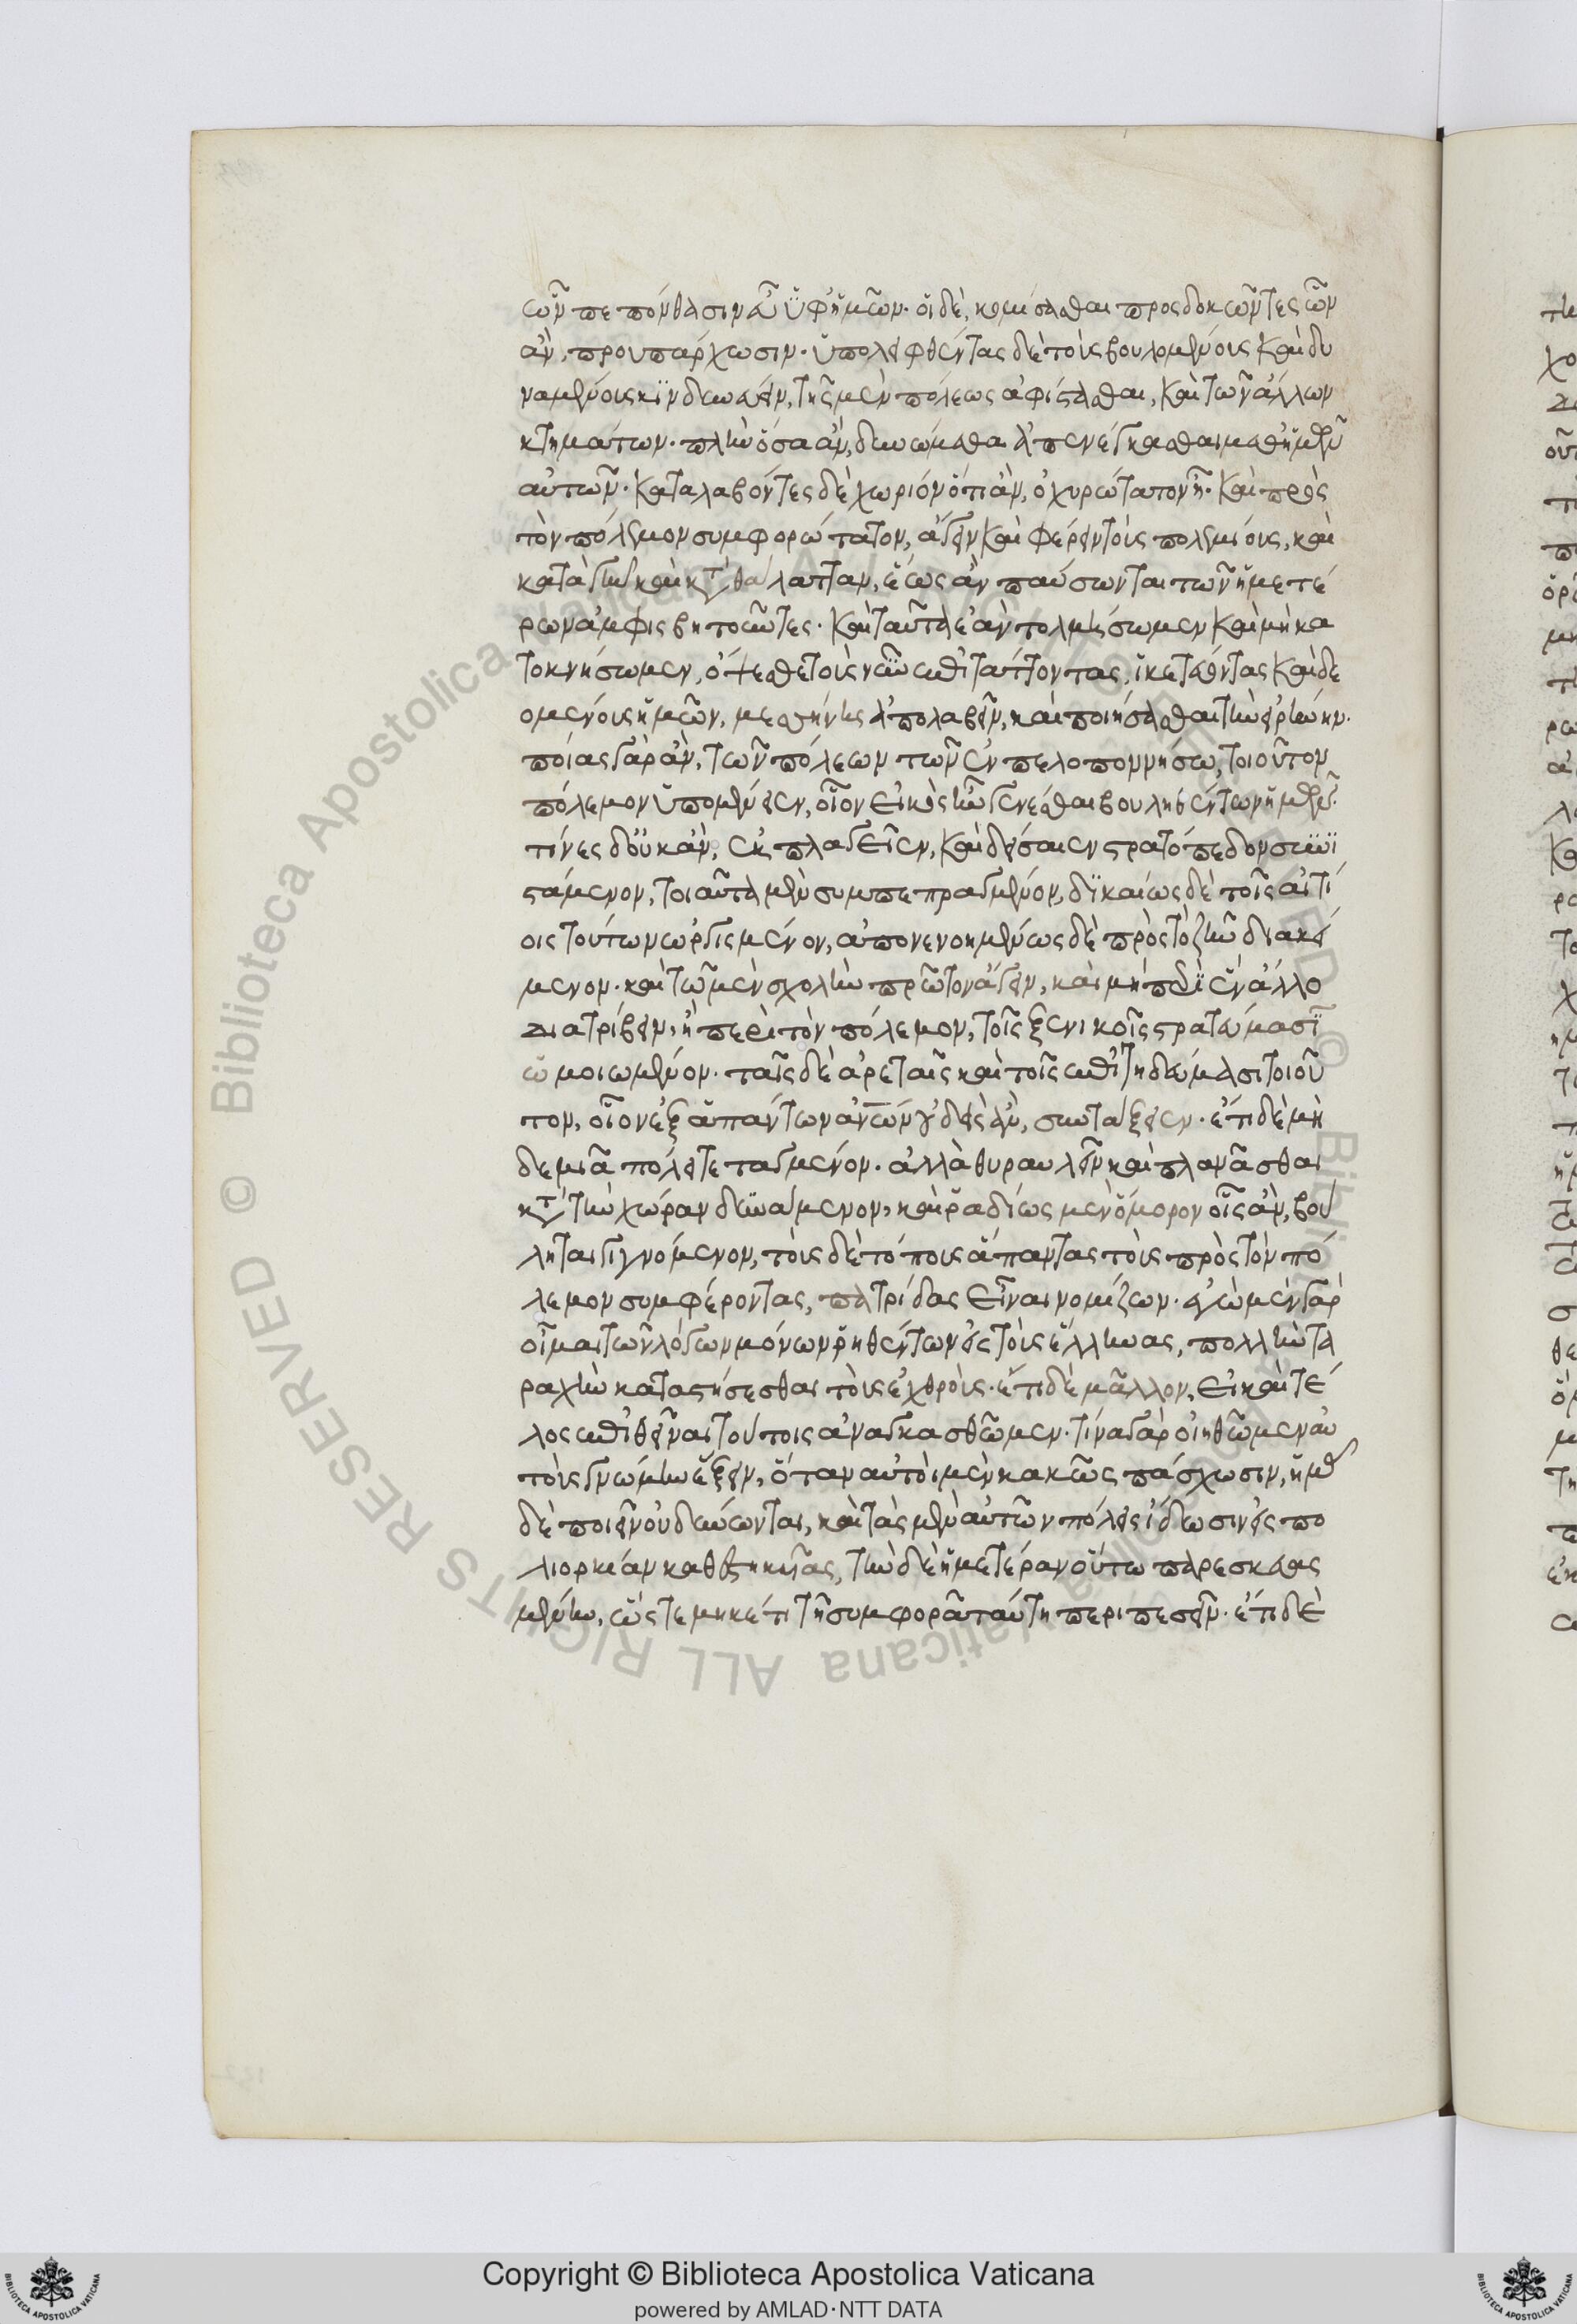 ὧν πεπόνθασιν εὖ ὑφ' ἡμῶν· οἱ δὲ, κομίσασθαι προσδοκῶντες ὧν
ἂν, προυπάρχωσιν· ὑπολειφθέντας δὲ τοὺς βουλομένους καὶ δυ
ναμένους κινδυνεύειν, τῆς μὲν πόλεως ἀφίστασθαι, καὶ τῶν ἄλλων
κτημάτων· πλὴν ὅσα ἂν, δυνώμεθα ἀπενέγκασθαι μεθ' ἡμῶν
αὐτῶν· καταλαβόντες δὲ χωρίον ὅτι ἂν, ὀχυρώτατον ᾖ· καὶ πρὸς
τὸν πόλεμον συμφορώτατον, ἄγειν καὶ φέρειν τοὺς πολεμίους, καὶ
κατὰ γῆν καὶ κατὰ θάλατταν, ἕως ἂν παύσωνται τῶν ἡμετέ
ρων ἀμφισβητοῦντες· καὶ ταῦτα ἐὰν τολμήσωμεν καὶ μὴ κα
τοκνήσωμεν, ὄψεσθε τοὺς νῦν ἐπιτάττοντας, ἱκετεύοντας καὶ δε
ομένους ἡμῶν, μεσσήνην ἀπολαβεῖν, καὶ ποιήσασθαι τὴν εἰρήνην·
ποίας γὰρ ἂν, τῶν πόλεων τῶν ἐν πελοποννήσω, τοιοῦτον
πόλεμον ὑπομείνειεν, οἷον εἰκὸς ἦν γενέσθαι βουληθέντων ἡμῶν·
τίνες δ' οὐκ ἂν, ἐκπλαγεῖεν, καὶ δείσαιεν στρατόπεδον συνι
στάμενον, τοιαῦτα μὲν συμπεπραγμένον, δικαίως δὲ τοῖς αἰτί
οις τούτων ὠργισμένον, ἀπονενοημένως δὲ πρὸς τὸ ζῆν διακεί
μενον· καὶ τῶ μὲν σχολὴν πρῶτον ἄγειν, καὶ μὴ περὶ ἓν ἄλλο
διατρίβειν, ἢ περὶ τὸν πόλεμον, τοῖς ξενικοῖς στρατεύμασι
ὡμοιωμένον· ταῖς δὲ ἀρεταῖς καὶ τοῖς ἐπιτηδεύμασι τοιοῦ
τον, οἷον ἐξ ἁπάντων ἀνθρώπων οὐδεὶς ἂν, συντάξειεν· ἔτι δὲ μη
δεμιᾶ πόλει τεταγμένον· ἀλλὰ θυραυλεῖν καὶ πλανᾶσθαι
κατὰ τὴν χώραν δυνάμενον, καὶ ῥαδίως μὲν ὅμορον οἷς ἂν, βού
ληται γιγνόμενον, τοὺς δὲ τόπους ἅπαντας τοὺς πρὸς τὸν πό
λεμον συμφέροντας, πατρίδας εἶναι νομίζων· ἐγὼ μὲν γὰρ
οἶμαι τῶν λόγων μόνων ῥηθέντων εἰς τοὺς ἕλληνας, πολλὴν τα
ραχὴν καταστήσεσθαι τοὺς ἐχθρούς· ἔτι δὲ μᾶλλον, εἰ καὶ τέ
λος ἐπιθεῖναι τούτοις ἀναγκασθῶμεν· τίνα γὰρ οἰηθῶμεν αὐ
τοὺς γνώμην ἕξειν, ὅταν αὐτοὶ μὲν κακῶς πάσχωσιν, ἡμᾶς
δὲ ποιεῖν οὐ δύνωνται, καὶ τὰς μὲν αὑτῶν πόλεις ἴδωσιν εἰς πο
λιορκίαν καθεστηκυίας, τὴν δὲ ἡμετέραν οὕτω παρεσκευασ
μένην, ὥστε μηκέτι τῆ συμφορᾶ ταύτη περιπεσεῖν· ἔτι δὲ
Copyright © Biblioteca Apostolica Vaticana
powered by AMLAD·NTT DATA